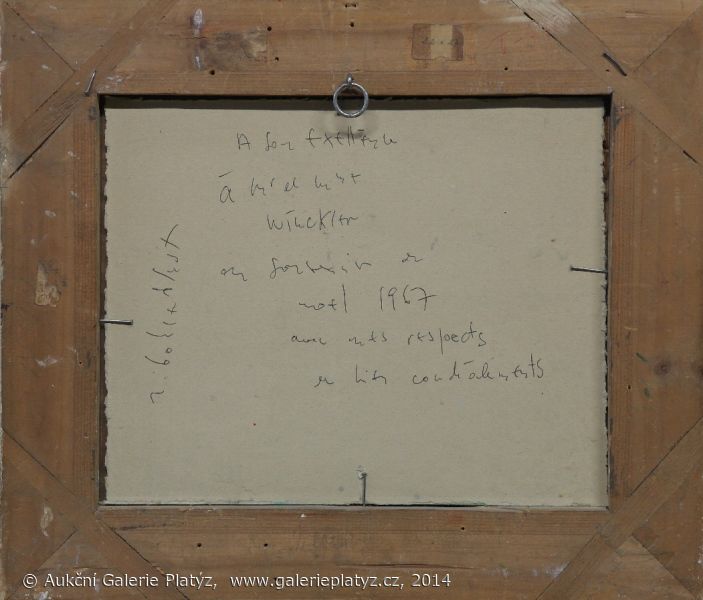 A Son Excellence
à Mr et Mme
Winckler
en souvenir de
noel 1967
avec mes respects
et bien cordialements
© Aukční Galerie Platýz, www.galerieplatyz.cz, 2014